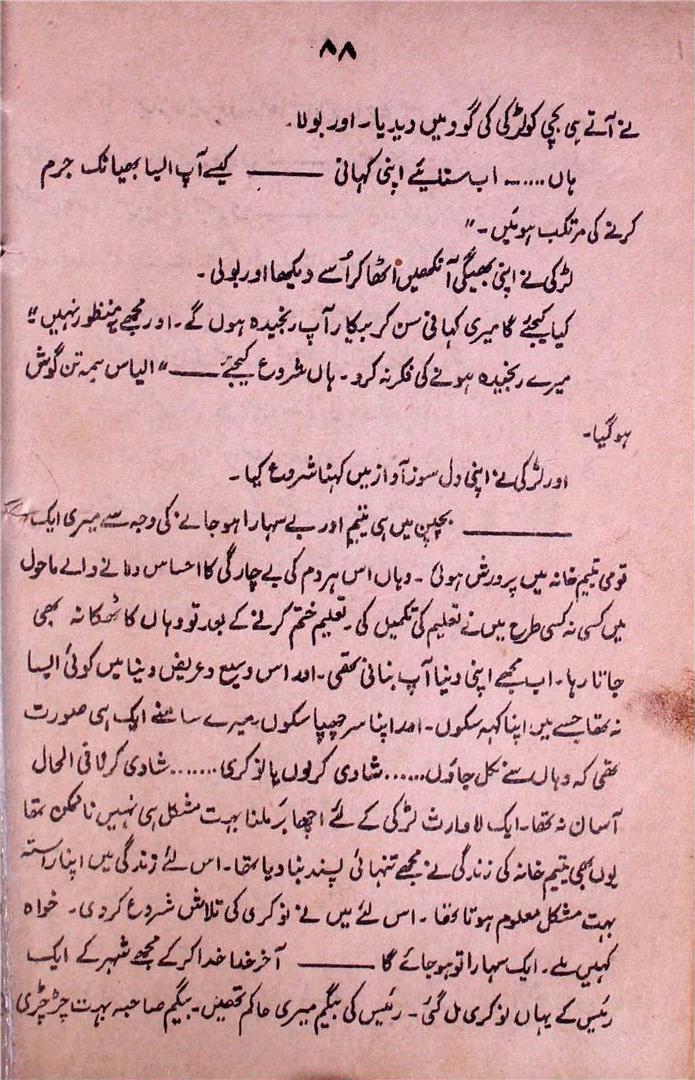 ۸۸
نے آتے ہی بچی کو لڑکی کی گود میں دیدیا۔ اور بولا۔
ہاں...... اب سنایئے اپنی کہانی ــــــــ کیسے آپ ایسا بھیانک جرم
کرنے کی مرتکب ہوئیں۔"
لڑکی نے اپنی بھیگی آنکھیں اٹھا کر اُسے دیکھا اور بولی۔
کیا کیجئے گا میری کہانی سن کر بیکار آپ رنجیدہ ہوں گے۔ اور مجھے یہ منظور نہیں"
میرے رنجیدہ ہونے کی فکر نہ کرو۔ ہاں شروع کیجئے ــــــــ" الیاس ہمہ تن گوش
ہو گیا۔
اور لڑکی نے اپنی دل سوز آواز میں کہنا شروع کیا۔
ــــــــ بچپن میں ہی یتیم اور بے سہارا ہو جانے کی وجہ سے میری ایک
قومی یتیم خانہ میں پرورش ہوئی۔ وہاں اس ہر دم کی بے چارگی کا احساس دلانے والے ماحول
میں کسی نہ کسی طرح میں نے تعلیم کی تکمیل کی۔ تعلیم ختم کرنے کے بعد تو وہاں کا ٹھکانہ بھی
جاتا رہا۔ اب مجھے اپنی دنیا آپ بنانی تھی۔ اور اس وسیع و عریض دنیا میں کوئی ایسا
نہ تھا جسے میں اپنا کہہ سکوں۔ اور اپنا سر چھپا سکوں۔ میرے سامنے ایک ہی صورت
تھی کہ وہاں سے نکل جاؤں...... شادی کر لوں یا نوکری....... شادی کرنا فی الحال
آسان نہ تھا۔ ایک لاوارث لڑکی کے لئے اچھا بَر ملنا بہت مشکل ہی نہیں ناممکن تھا
یوں بھی یتیم خانہ کی زندگی نے مجھے تنہائی پسند بنا دیا تھا۔ اس لئے زندگی میں اپنا راستہ
بہت مشکل معلوم ہوتا تھا۔ اس لئے میں نے نوکری کی تلاش شروع کر دی۔ خواہ
کہیں ملے۔ ایک سہارا تو ہو جائے گا ــــــــ آخر خدا خدا کر کے مجھے شہر کے ایک
رئیس کے یہاں نوکری مل گئی۔ رئیس کی بیگم میری حاکم تھیں۔ بیگم صاحبہ بہت چڑچڑی